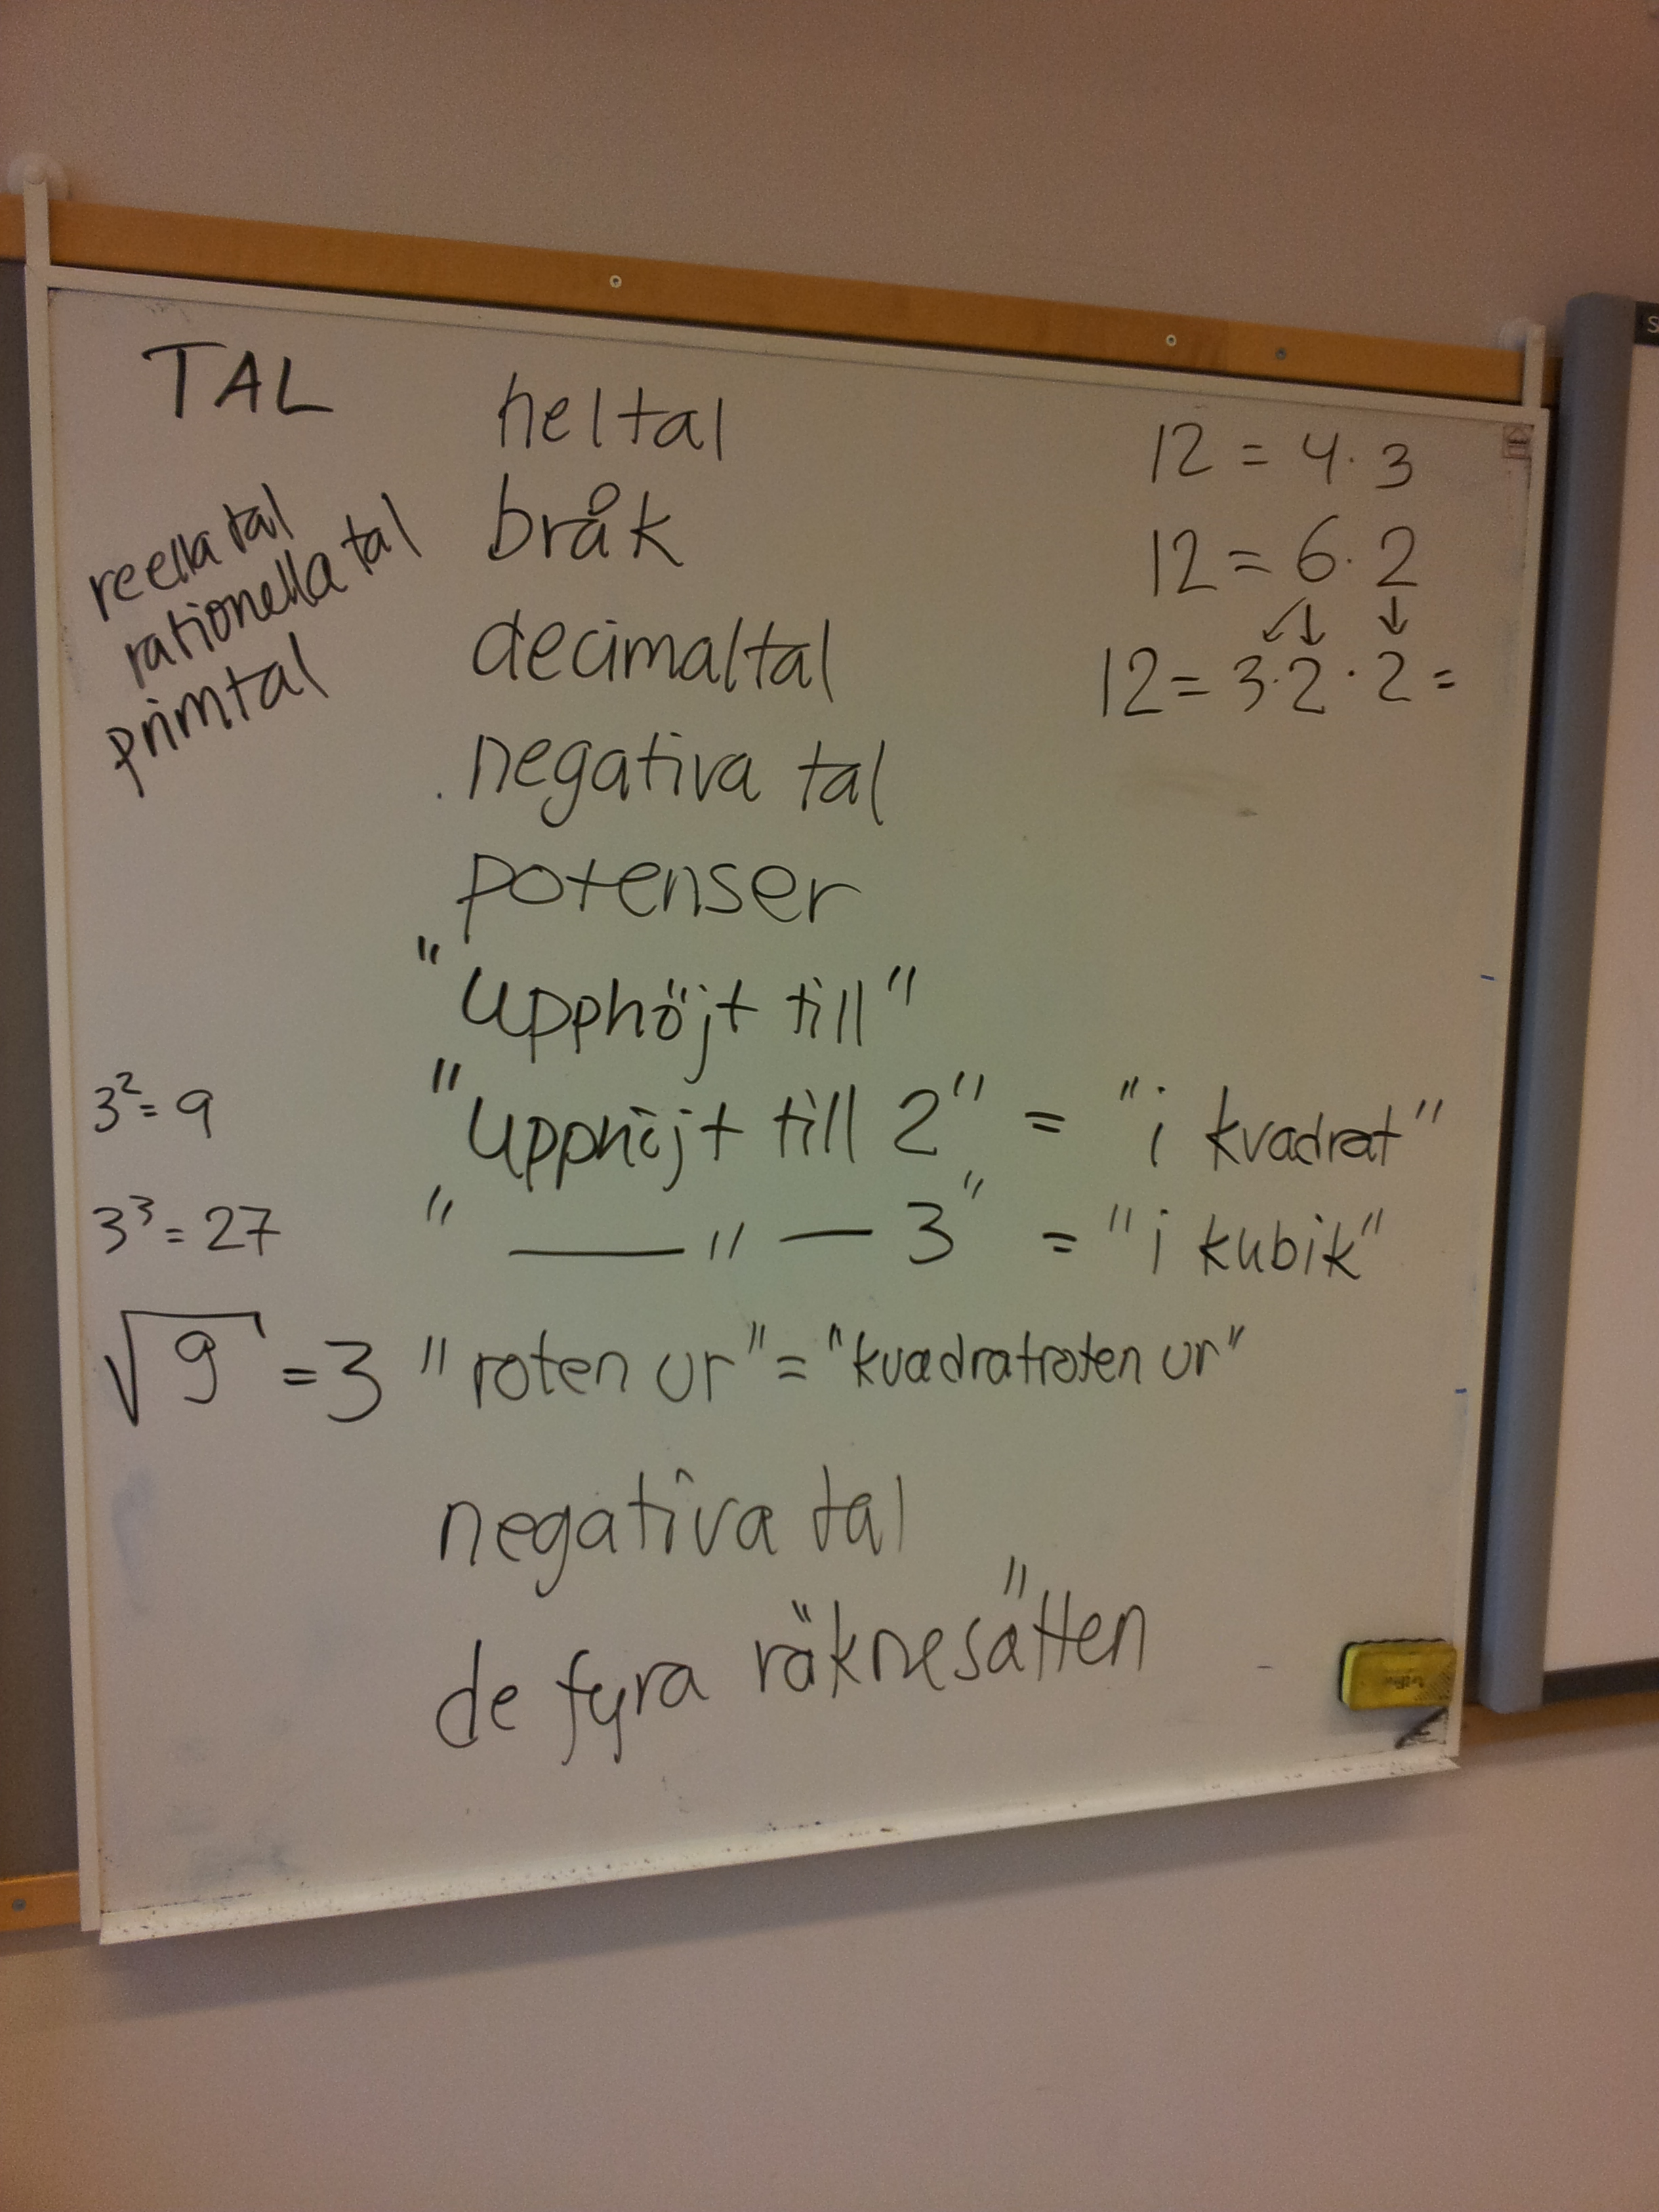 TAL
reella tal
rationella tal
primtal
heltal
bråk
decimaltal
negativa tal
potenser
"upphöjt till"
3²=9 "upphöjt till 2" = "i kvadrat"
3³=27 " —— " — 3" = "i kubik"
√9 = 3 "roten ur" = "kvadratroten ur"
negativa tal
de fyra räknesätten
12 = 4·3
12 = 6·2
↙↓ ↓
12 = 3·2·2 =
S